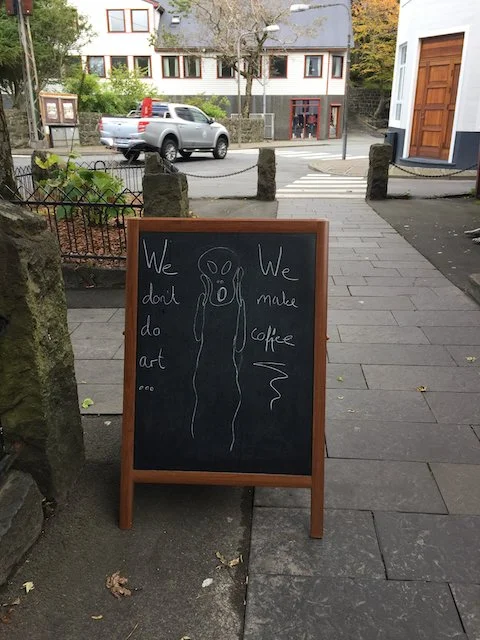 We
don't
do
art
...
We
make
coffee